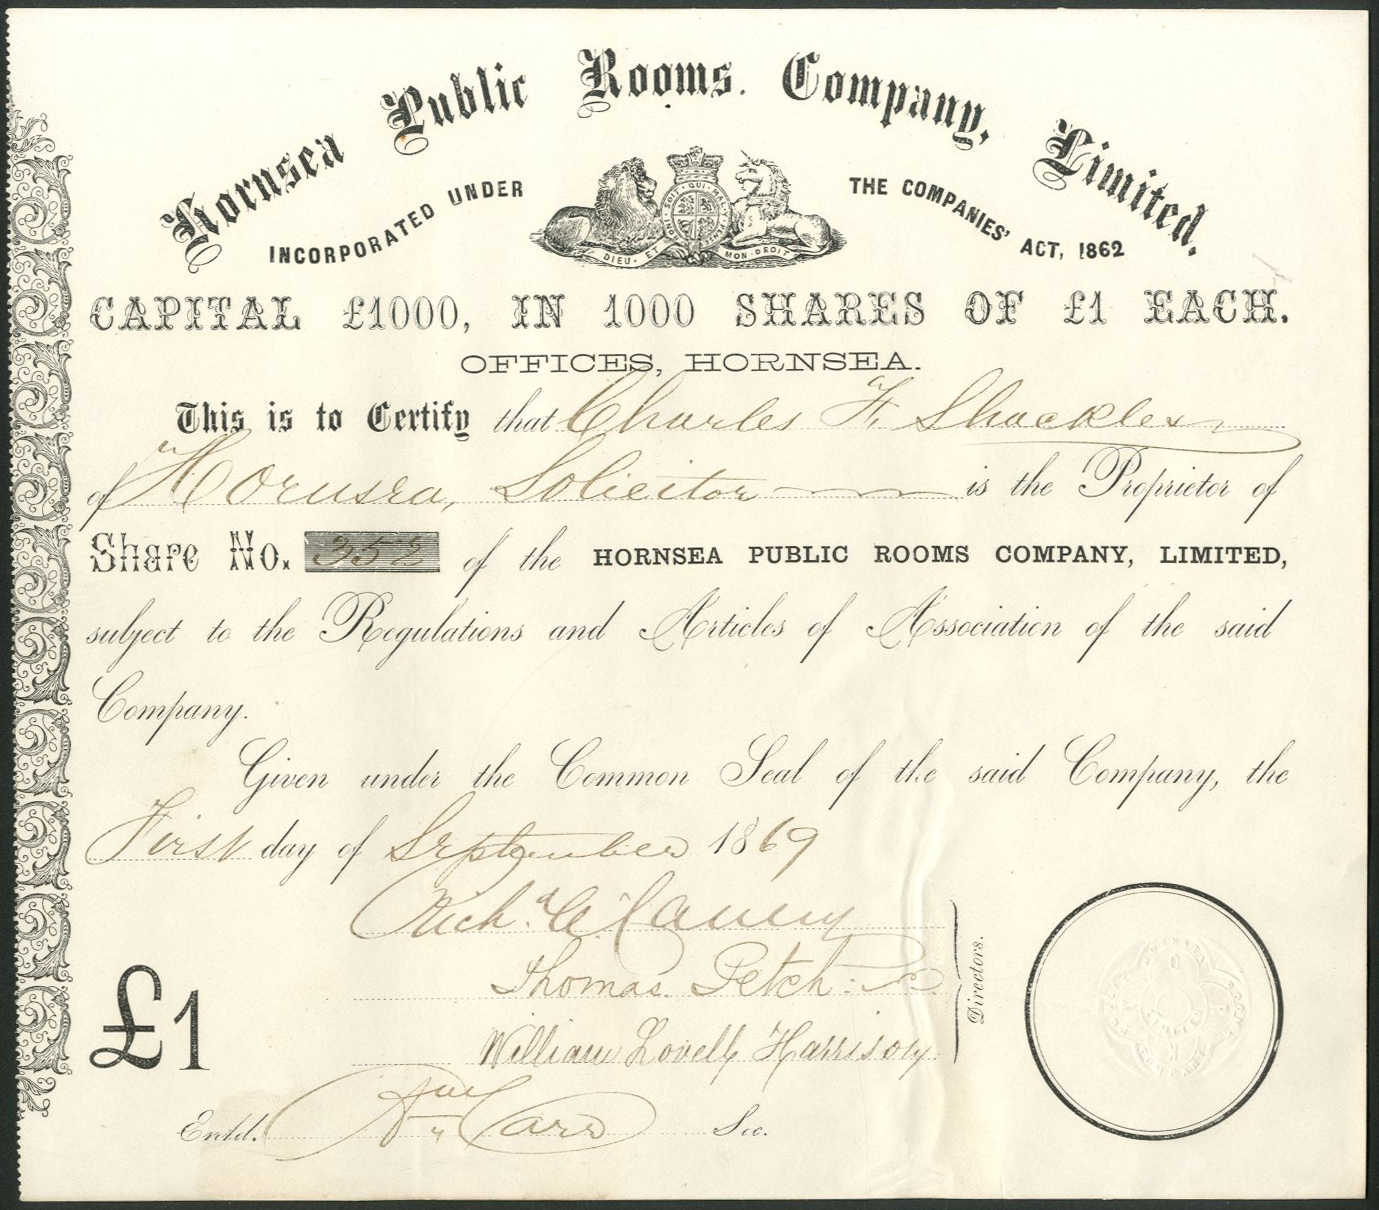 Hornsea Public Rooms. Company, Limited.
INCORPORATED UNDER THE COMPANIES' ACT, 1862
HONI SOIT QUI MAL Y PENSE
DIEU ET MON DROIT
CAPITAL £1000, IN 1000 SHARES OF £1 EACH.
OFFICES, HORNSEA.
This is to Certify that Charles F. Shackles
of Hornsea, Solicitor is the Proprietor of
Share No. 352 of the HORNSEA PUBLIC ROOMS COMPANY, LIMITED,
subject to the Regulations and Articles of Association of the said
Company.
Given under the Common Seal of the said Company, the
First day of September 1869
Richd.
Thomas Petch
William Lovell Harrison
Directors.
£1
Entd. Wm Carr Sec.
LIMITED